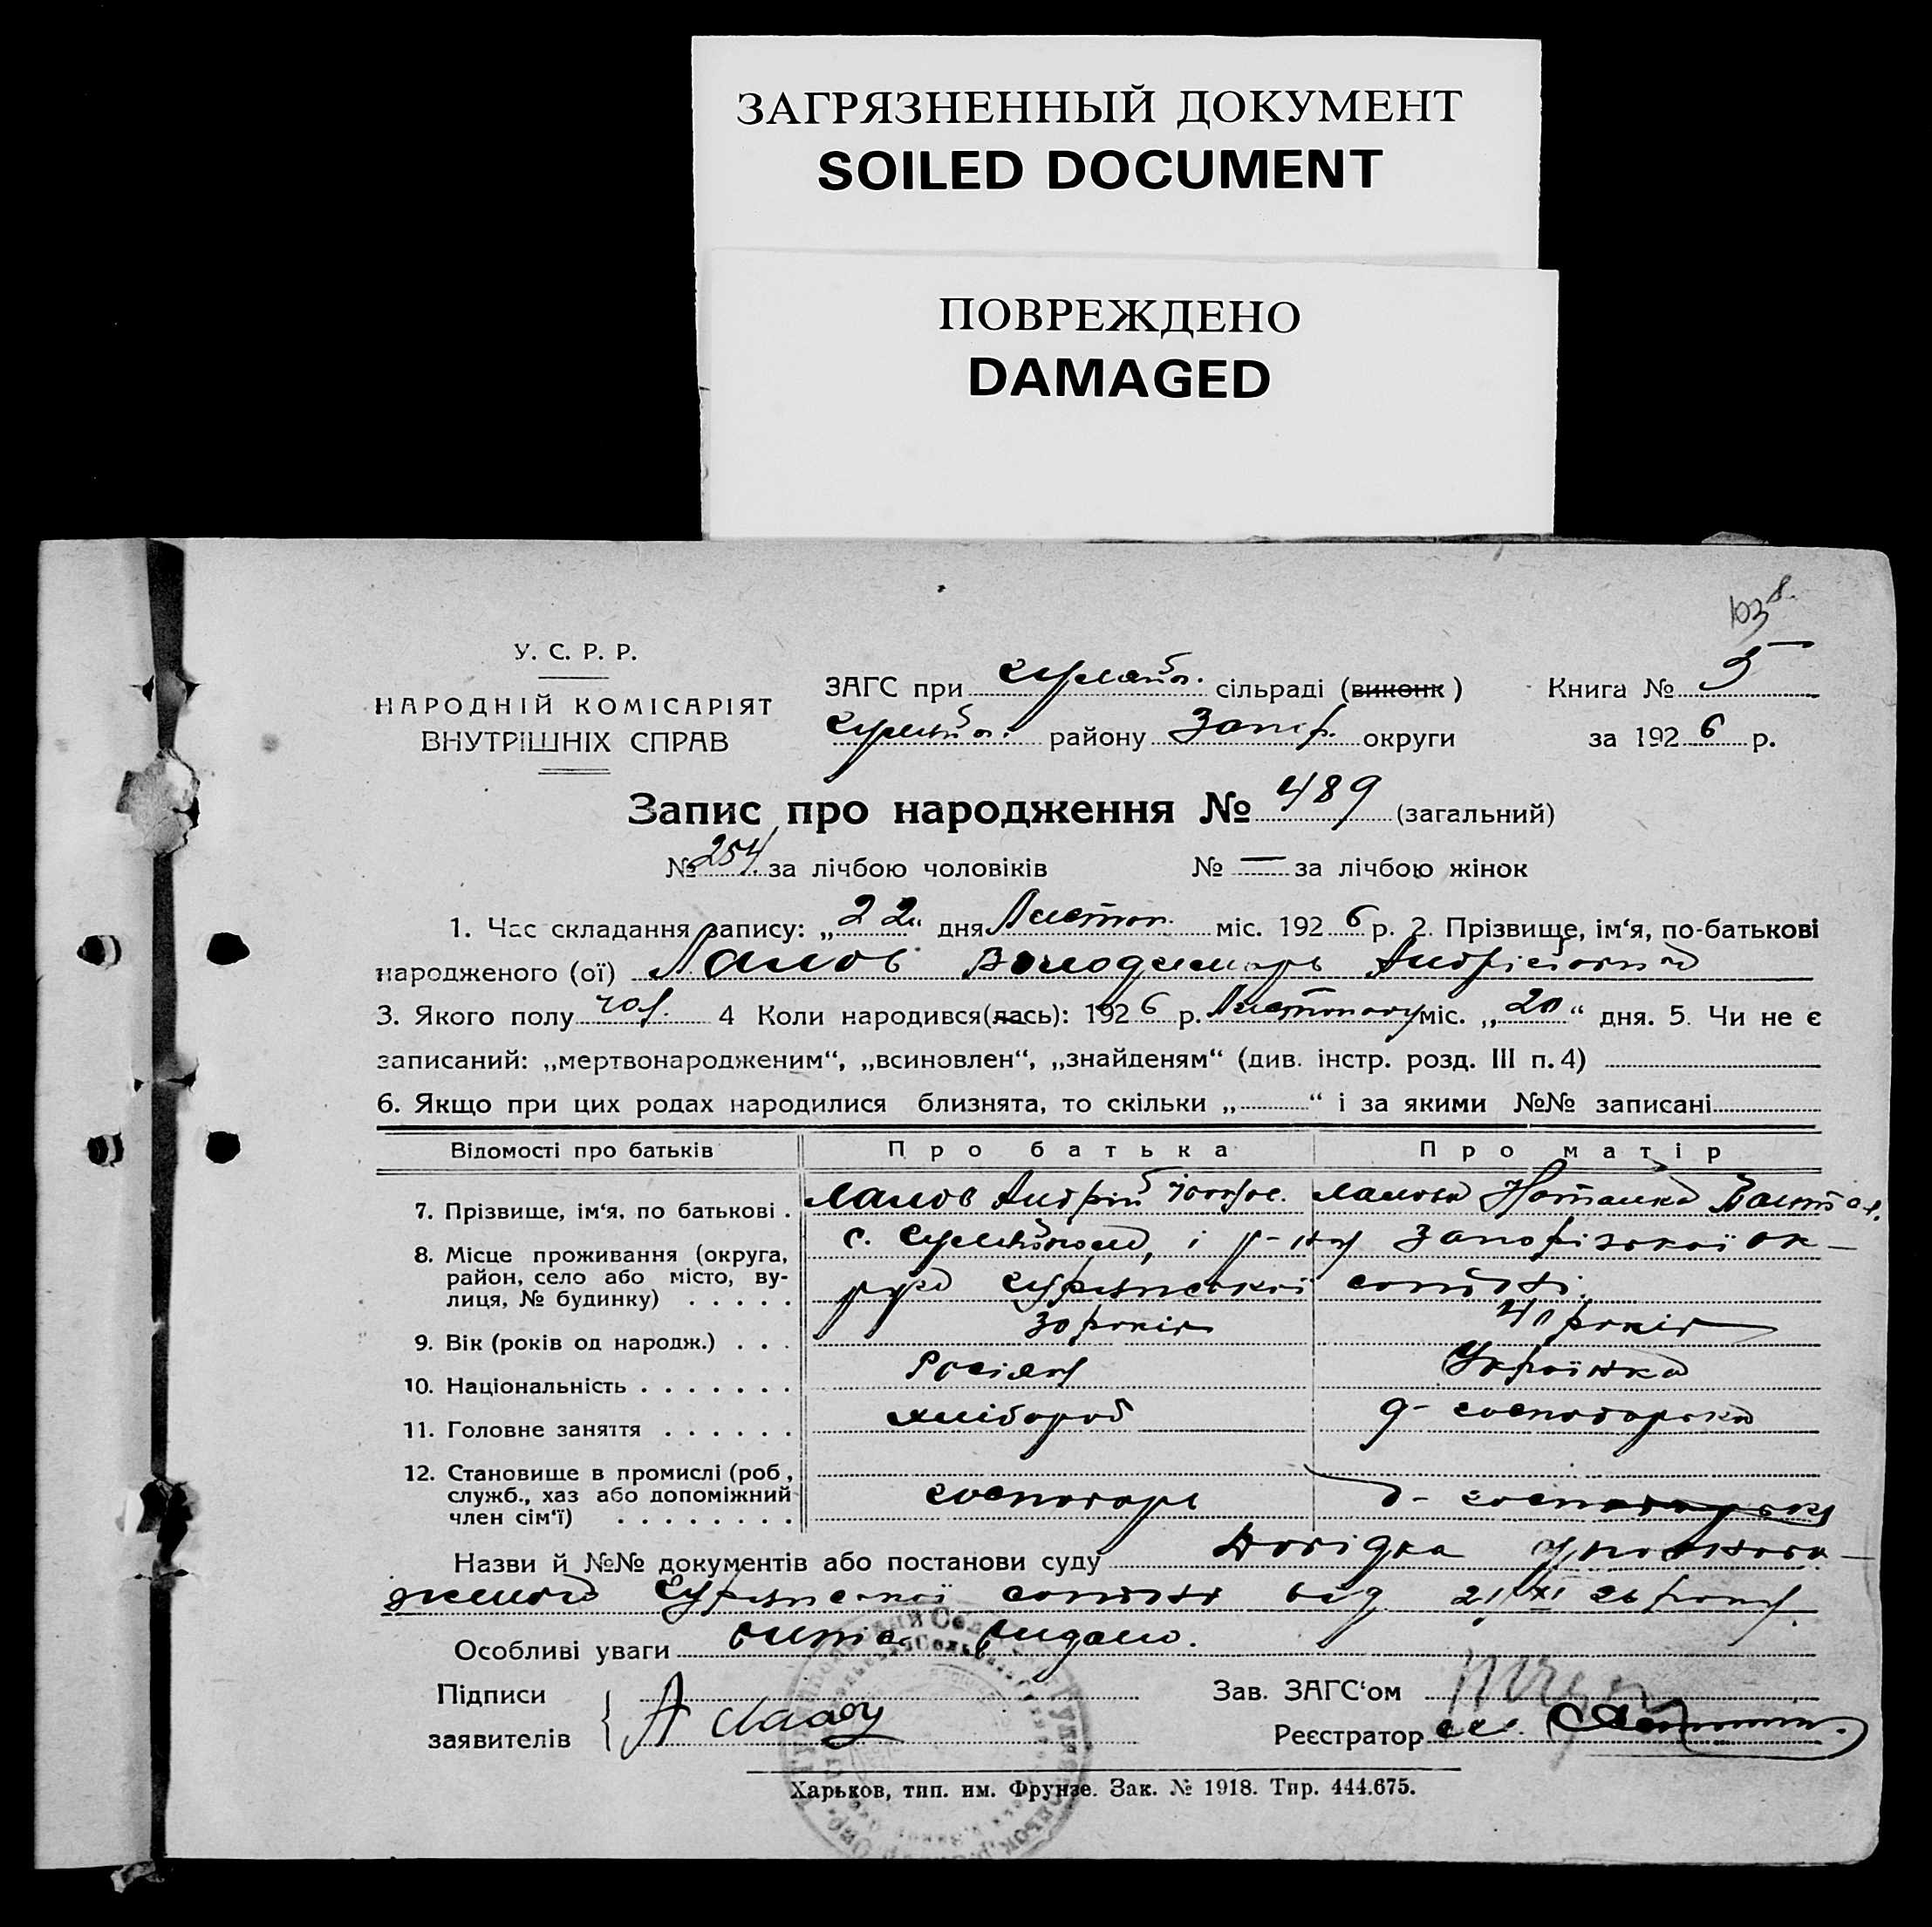 ЗАГРЯЗНЕННЫЙ ДОКУМЕНТ
SOILED DOCUMENT
ПОВРЕЖДЕНО
DAMAGED
103
У. С. Р. Р.
НАРОДНІЙ КОМІСАРІЯТ
ВНУТРІШНІХ СПРАВ
ЗАГС при сільраді (виконк) Книга № 5
району Запор. округи за 1926 р.
Запис про народження № 489 (загальний)
№ 254 за лічбою чоловіків № — за лічбою жінок
1. Час складання запису: „22“ дня Листоп. міс. 1926 р. 2. Прізвище, ім‘я, по-батькові
народженого (ої) Ламов Володимирь Андрієвич
3. Якого полу чол. 4 Коли народився(лась): 1926 р. Листопаду міс. „20“ дня. 5. Чи не є
записаний: „мертвонародженим“, „всиновлен“, „знайденям“ (див. інстр. розд. III п. 4)
6. Якщо при цих родах народилися близнята, то скільки „ “ і за якими №№ записані
Відомості про батьків Про батька Про матір
7. Прізвище, ім‘я, по батькові . Ламов Андрій Ламова Наталка
8. Місце проживання (округа, с. і р-ну Запорізської ок-
район, село або місто, ву-
лиця, № будинку) . . . . . руга
9. Вік (років од народж.) . . . 30 років 40 років
10. Національність . . . . . . . Росіян Українка
11. Головне заняття . . . . . . хлібороб д-господарка
12. Становище в промислі (роб., служб., хаз або допоміжний член сім‘ї) . . . . . . . . господарь д-господарька
Назви й №№ документів або постанови суду Довідка уповнова-
женого від 21/XI 26 року.
Особливі уваги видано.
Підписи
заявителів
Зав. ЗАГС‘ом
Реєстратор
Харьков, тип. им. Фрунзе. Зак. № 1918. Тир. 444.675.